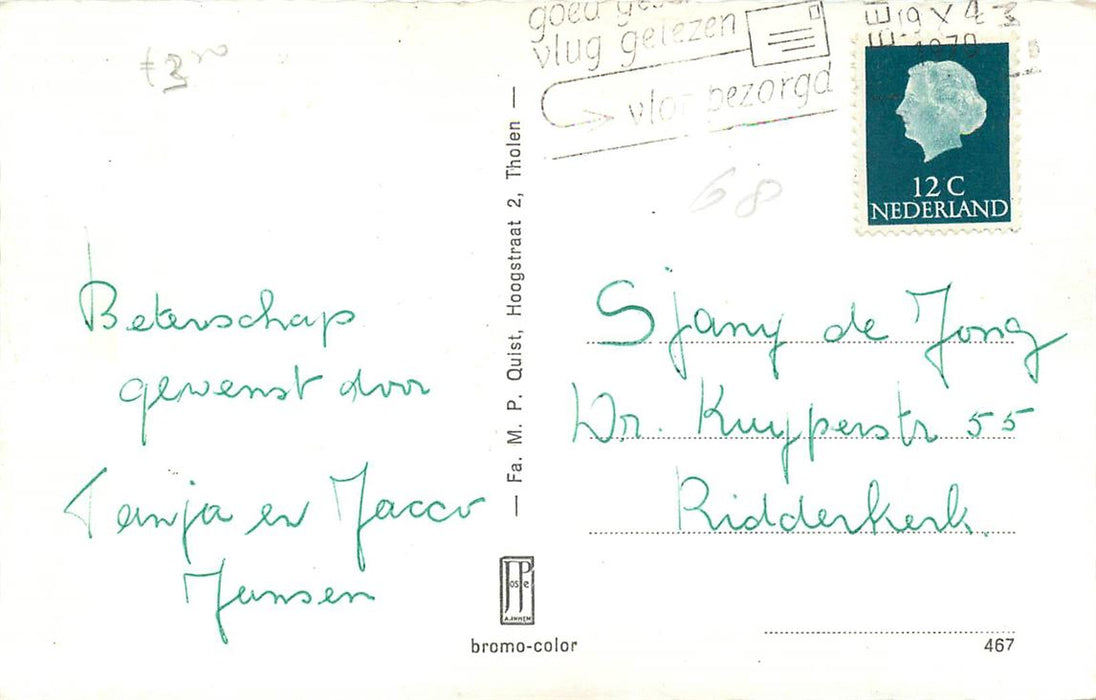 vlug gelezen
vlot bezorgd
68
12 C
NEDERLAND
Beterschap
gewenst door
Tanja en Jacco
Jansen
— Fa. M. P. Quist, Hoogstraat 2, Tholen —
Sjany de Jong
Dr. Kuyperstr 55
Ridderkerk.
JosPe
ARNHEM
bromo-color
467